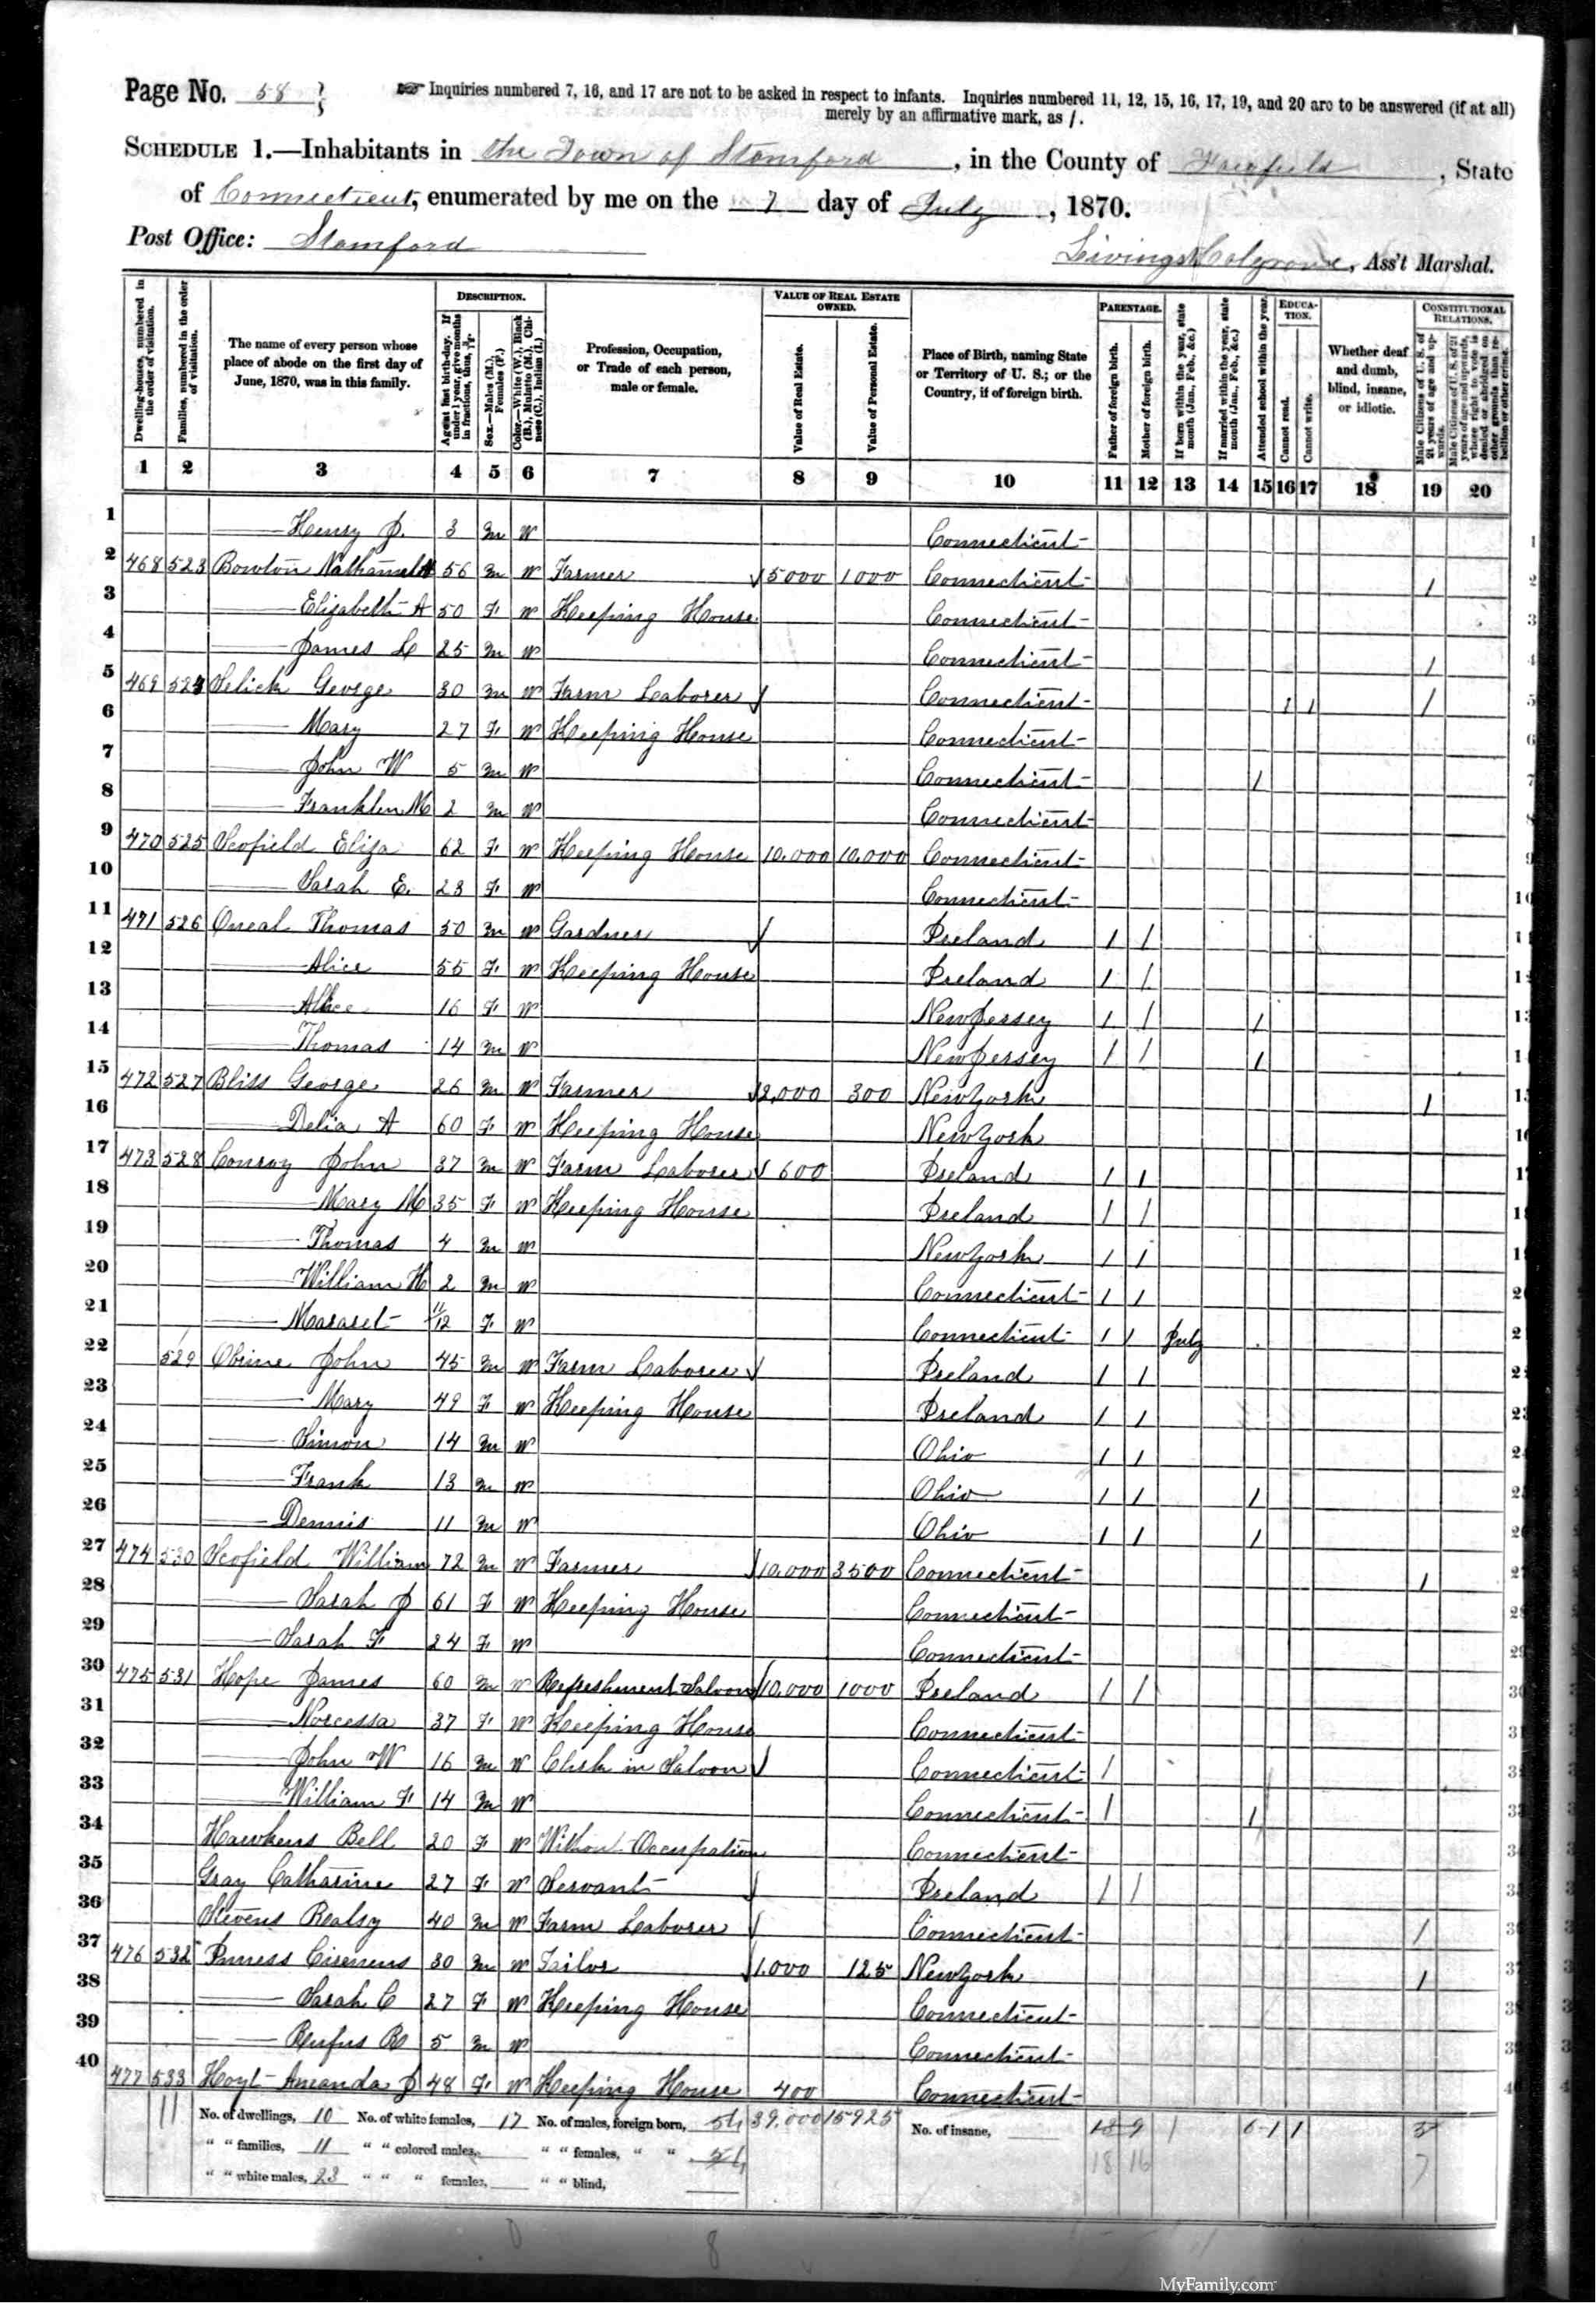 Page No. 58
Inquiries numbered 7, 16, and 17 are not to be asked in respect to infants. Inquiries numbered 11, 12, 15, 16, 17, 19, and 20 are to be answered (if at all)
merely by an affirmative mark, as /.
SCHEDULE 1.—Inhabitants in the Town of Stamford, in the County of Fairfield, State
of Connecticut, enumerated by me on the 7 day of July, 1870.
Post Office: Stamford
Colgrove, Ass't Marshal.
Dwelling-houses, numbered in the order of visitation.
Families, numbered in the order of visitation.
The name of every person whose place of abode on the first day of June, 1870, was in this family.
DESCRIPTION.
Age at last birth-day. If under 1 year, give months in fractions, thus, 3/12.
Sex.—Males (M.), Females (F.)
Color.—White (W.), Black (B.), Mulatto (M.), Chinese (C.), Indian (I.)
Profession, Occupation, or Trade of each person, male or female.
VALUE OF REAL ESTATE OWNED.
Value of Real Estate.
Value of Personal Estate.
Place of Birth, naming State or Territory of U. S.; or the Country, if of foreign birth.
PARENTAGE.
Father of foreign birth.
Mother of foreign birth.
If born within the year, state month (Jan., Feb., &c.)
If married within the year, state month (Jan., Feb., &c.)
Attended school within the year.
EDUCATION.
Cannot read.
Cannot write.
Whether deaf and dumb, blind, insane, or idiotic.
CONSTITUTIONAL RELATIONS.
Male Citizens of U. S. of 21 years of age and upwards.
Male Citizens of U. S. of 21 years of age and upwards, whose right to vote is denied or abridged on other grounds than rebellion or other crime.
1 2 3 4 5 6 7 8 9 10 11 12 13 14 15 16 17 18 19 20
1 Henry J. 3 M W Connecticut
2 468 523 Bowton Nathaniel 56 M W Farmer 5000 1000 Connecticut /
3 Elizabeth A 50 F W Keeping House Connecticut
4 James L 25 M W Connecticut /
5 469 524 Selick George 30 M W Farm Laborer Connecticut / / /
6 Mary 27 F W Keeping House Connecticut
7 John W 5 M W Connecticut /
8 Franklin M 2 M W Connecticut
9 470 525 Scofield Eliza 62 F W Keeping House 10,000 10,000 Connecticut
10 Sarah E. 23 F W Connecticut
11 471 526 Oneal Thomas 50 M W Gardner Ireland / /
12 Alice 55 F W Keeping House Ireland / /
13 Alice 16 F W New Jersey / / /
14 Thomas 14 M W New Jersey / / /
15 472 527 Bliss George 26 M W Farmer 2,000 300 New York /
16 Delia A 60 F W Keeping House New York
17 473 528 Conroy John 37 M W Farm Laborer 600 Ireland / /
18 Mary M 35 F W Keeping House Ireland / /
19 Thomas 4 M W New York / /
20 William H 2 M W Connecticut / /
21 Mararet 11/12 F W Connecticut / / July
22 529 Obrine John 45 M W Farm Laborer Ireland / /
23 Mary 49 F W Keeping House Ireland / /
24 Simon 14 M W Ohio / /
25 Frank 13 M W Ohio / / /
26 Dennis 11 M W Ohio / / /
27 474 530 Scofield William 72 M W Farmer 10,000 3500 Connecticut /
28 Sarah J 61 F W Keeping House Connecticut
29 Sarah F 24 F W Connecticut
30 475 531 Hope James 60 M W Refreshment Saloon 10,000 1000 Ireland / /
31 Norcessa 37 F W Keeping House Connecticut
32 John W 16 M W Clerk in Saloon Connecticut /
33 William F 14 M W Connecticut / /
34 Hawkens Bell 20 F W Without Occupation Connecticut
35 Gray Catharine 27 F W Servant Ireland / /
36 Stevens Realsy 40 M W Farm Laborer Connecticut /
37 476 532 30 M W Tailor 1,000 125 New York /
38 Sarah C 27 F W Keeping House Connecticut
39 Rufus B 5 M W Connecticut
40 477 533 Hoyt Amanda J 48 F W Keeping House 400 Connecticut
11 No. of dwellings, 10 No. of white females, 17 No. of males, foreign born, 39,000 15925 No. of insane,
" " families, 11 " " colored males, " " females, " " 18 16 7
" " white males, 23 " " " females, " " blind,
MyFamily.com